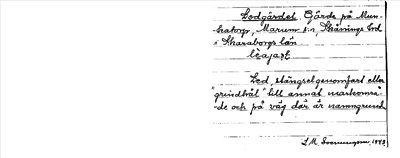 Ledgärdet Gärde på Mun-
katorp, Marum sn, Skånings hd
i Skaraborgs län
Led, stängselgenomfart eller
"grindhål" till annat markområ-
de och på väg där är namngrund
S.M. 1943